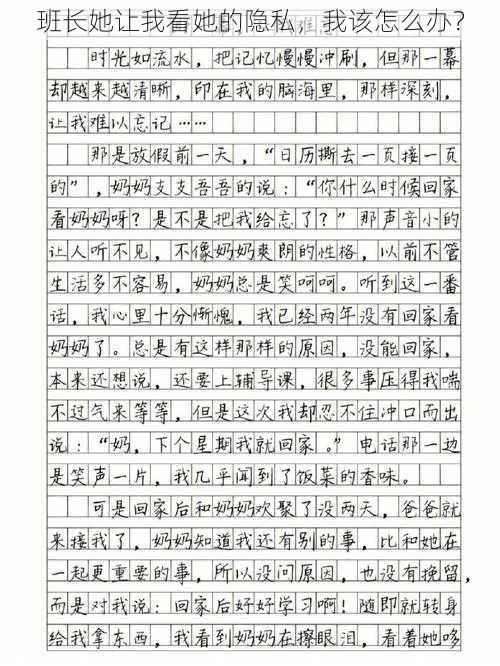 班长她让我看她的隐私，我该怎么办？
时光如流水，把记忆慢慢冲刷，但那一幕
却越来越清晰，印在我的脑海里，那样深刻，
让我难以忘记……
那是放假前一天，“日历撕去一页接一页
的”，妈妈支支吾吾的说：“你什么时候回家
看妈妈呀？是不是把我给忘了？”那声音小的
让人听不见，不像妈妈爽朗的性格，以前不管
生活多不容易，妈妈总是笑呵呵。听到这一番
话，我心里十分惭愧，我已经两年没有回家看
妈妈了。总是有这样那样的原因，没能回家，
本来还想说，还要上辅导课，很多事压得我喘
不过气来等等，但是这次我却忍不住冲口而出
说：“妈，下个星期我就回家。”电话那一边
是笑声一片，我几乎闻到了饭菜的香味。
可是回家后和妈妈欢聚了没两天，爸爸就
来接我了，妈妈知道我还有别的事，比和她在
一起更重要的事，所以没问原因，也没有挽留，
而是对我说：回家后好好学习啊！随即就转身
给我拿东西，我看到妈妈在擦眼泪，看着她哆